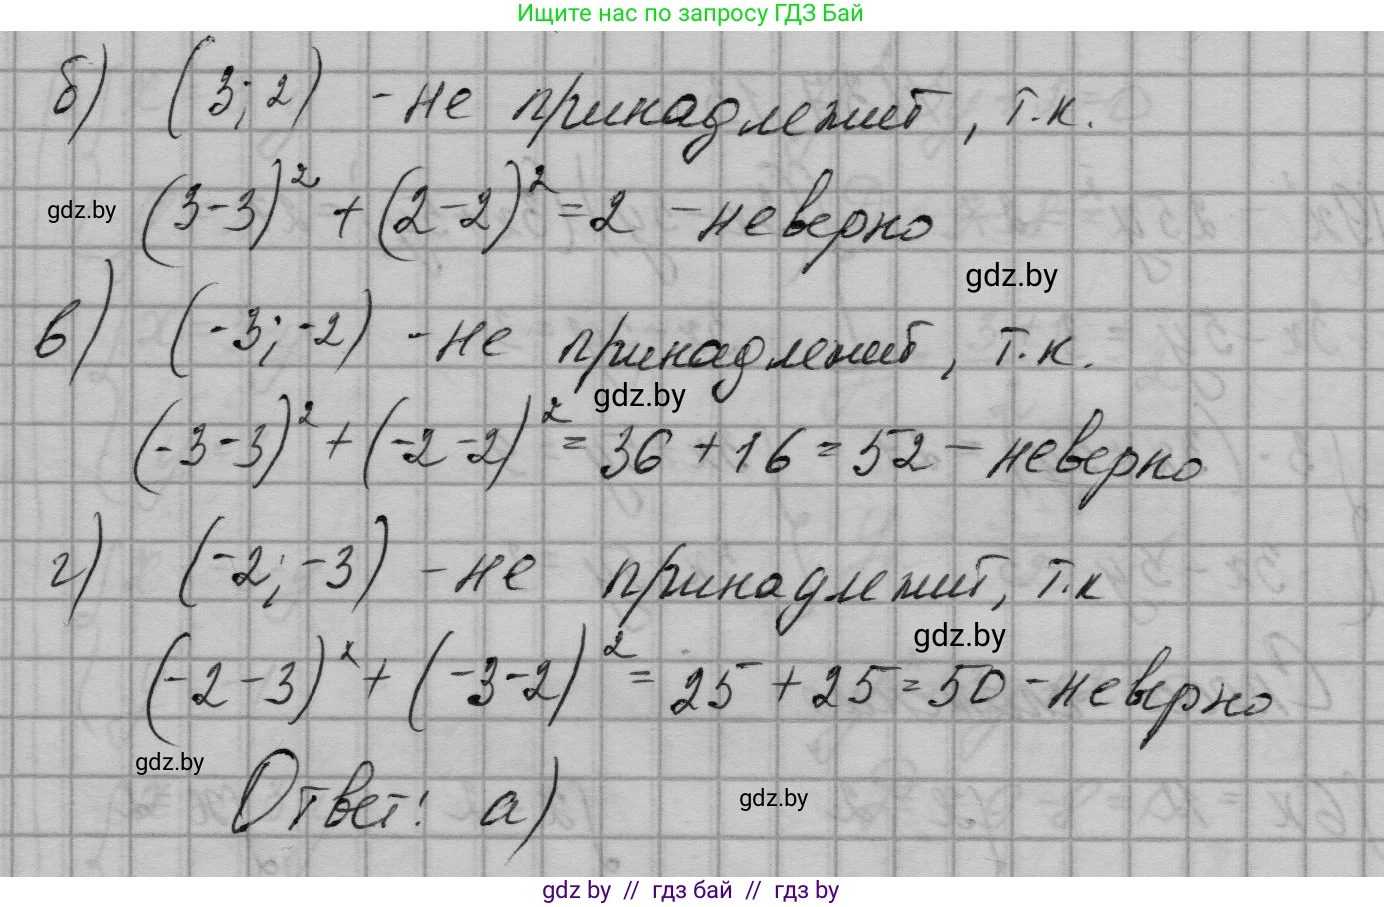 Ищите нас по запросу ГДЗ Бай
б) (3; 2) - не принадлежит, т.к.
gdz.by
(3-3)² + (2-2)² = 2 - неверно
gdz.by
в) (-3; -2) - не принадлежит, т.к.
gdz.by
(-3-3)² + (-2-2)² = 36 + 16 = 52 - неверно
г) (-2; -3) - не принадлежит, т.к
gdz.by
(-2-3)² + (-3-2)² = 25 + 25 = 50 - неверно
gdz.by
Ответ: а)
gdz.by
gdz by // гдз бай // гдз by